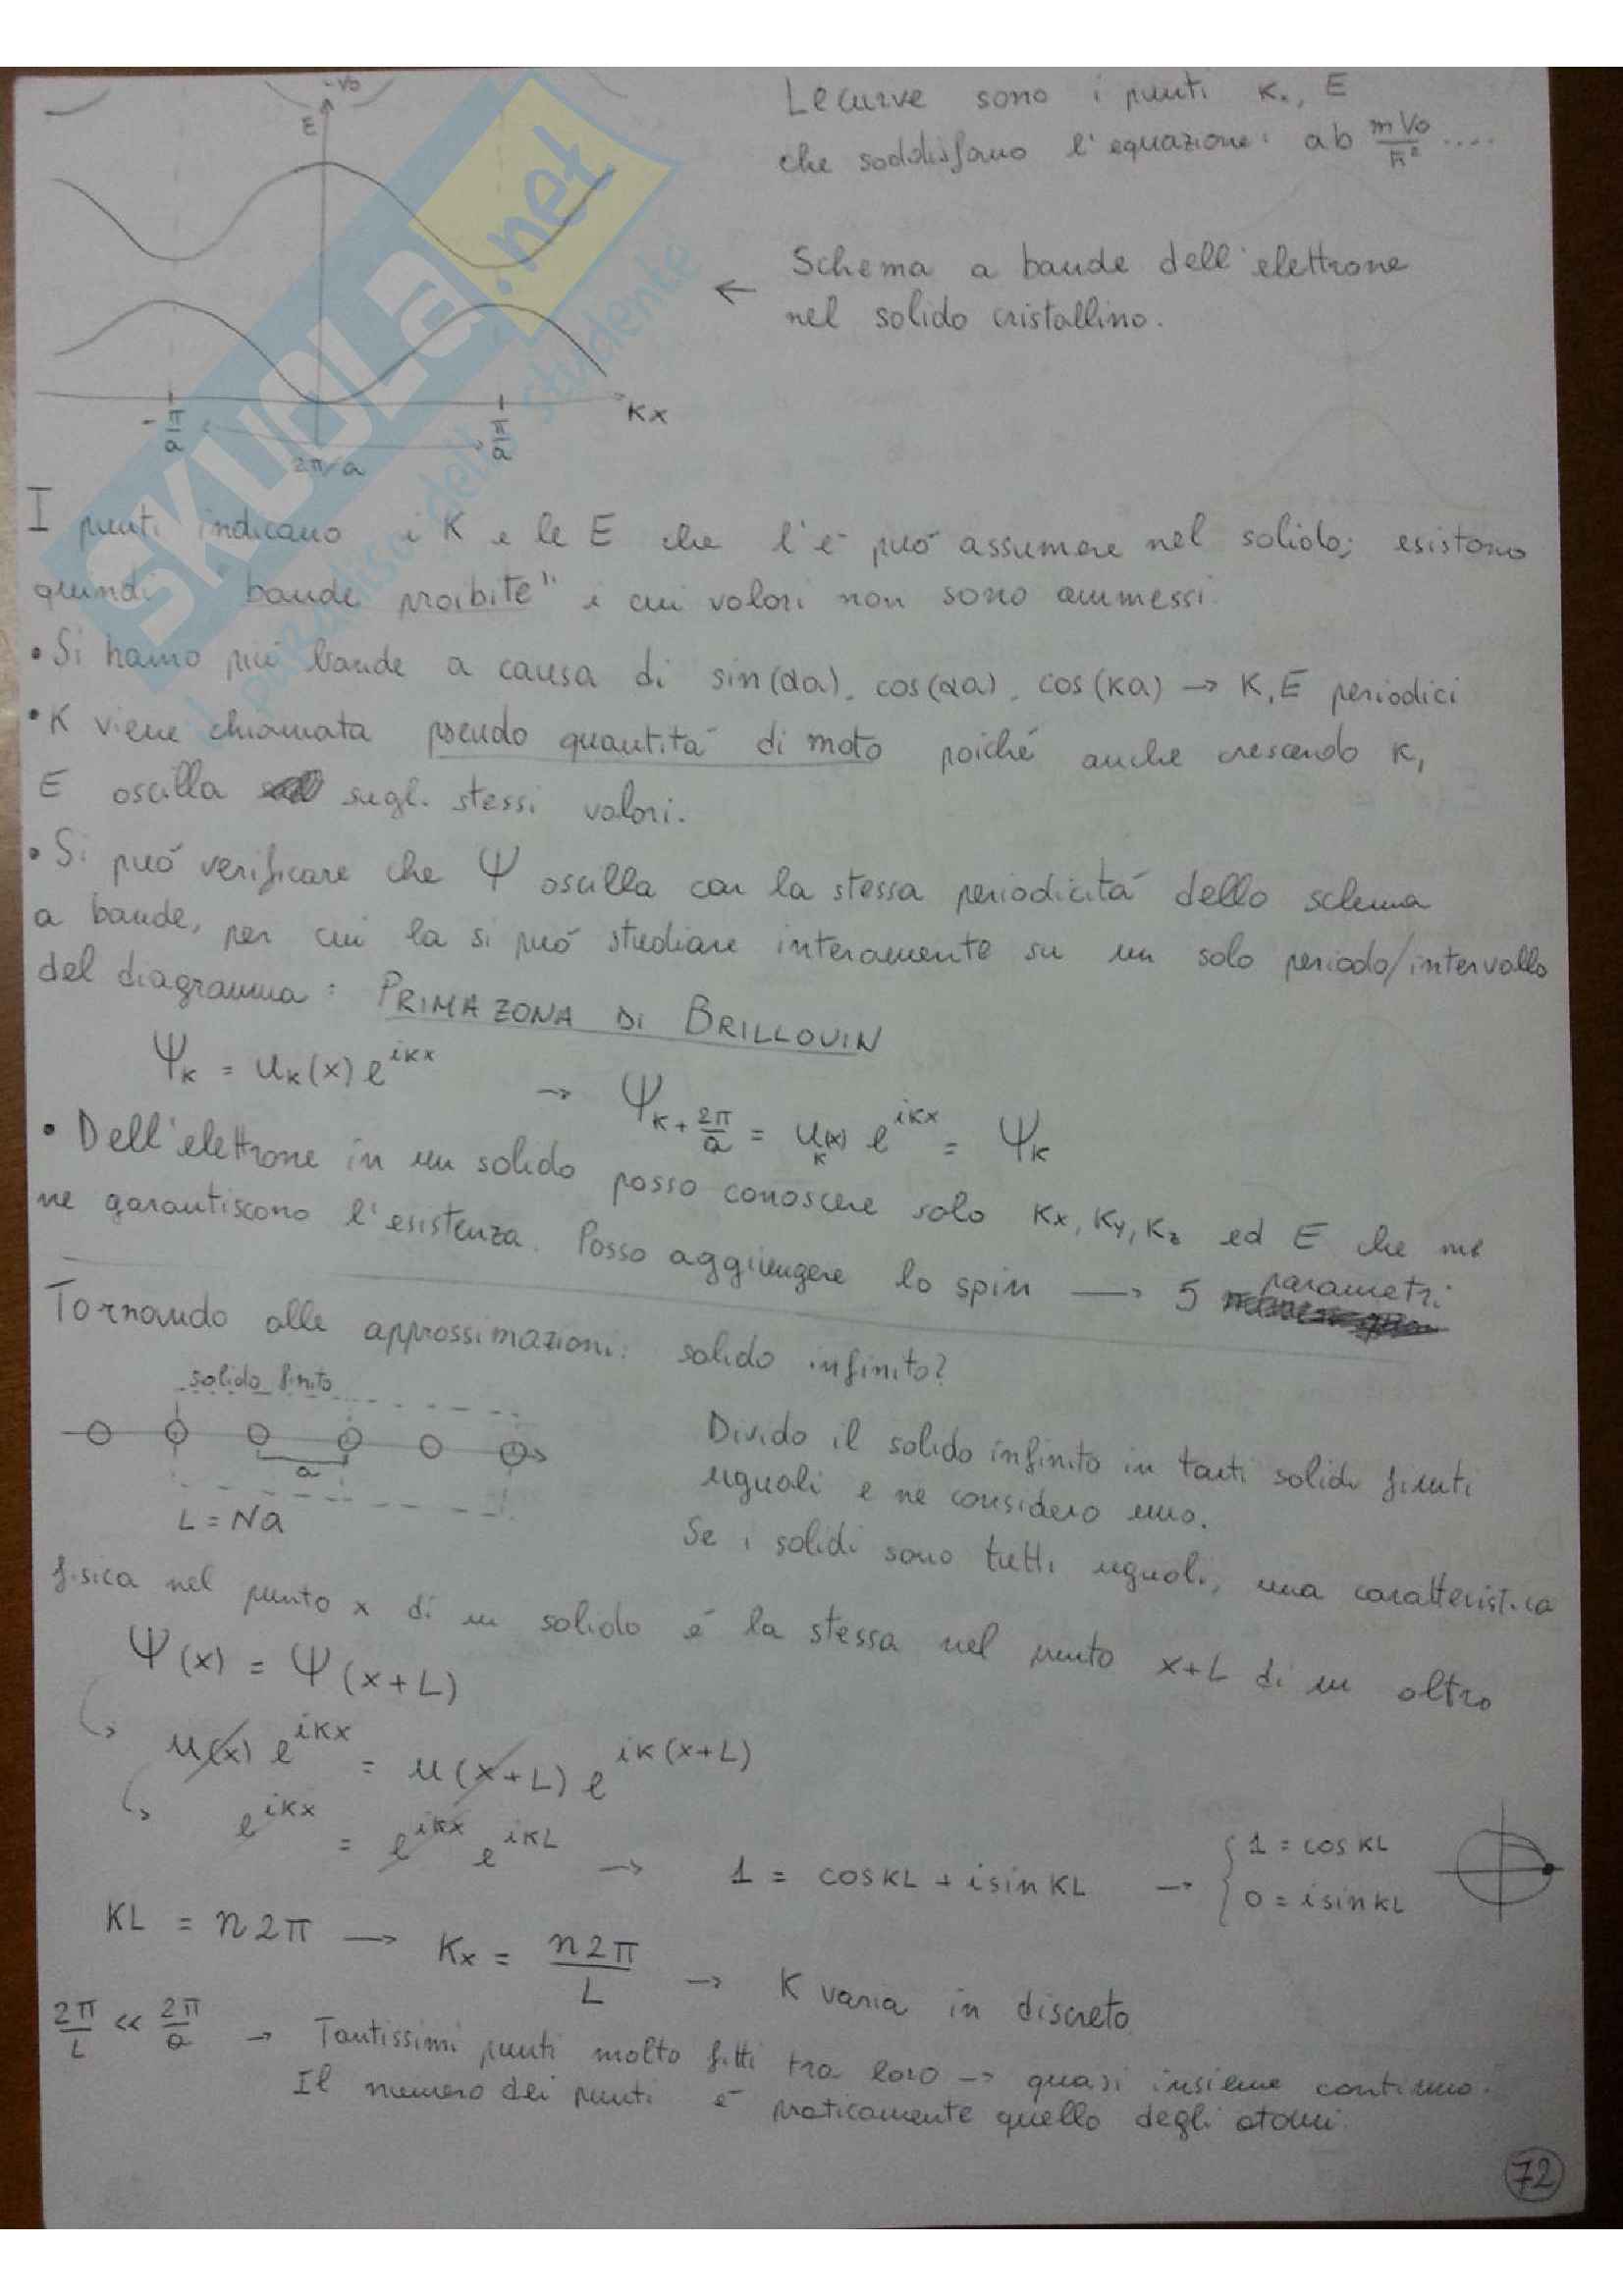 -V0
E
Le curve sono i punti K., E
che soddisfano l'equazione: ab mV0/ħ² ....
← Schema a bande dell'elettrone
nel solido cristallino.
-π/a
π/a
Kx
2π/a
SKUOLA.net
il paradiso dello studente
I punti indicano i K e le E che l'e⁻ può assumere nel solido; esistono
quindi "bande proibite" i cui valori non sono ammessi.
• Si hanno più bande a causa di sin(αa), cos(αa), cos(Ka) → K,E periodici
• K viene chiamata pseudo quantità di moto poiché anche crescendo K,
E oscilla sugli stessi valori.
• Si può verificare che Ψ oscilla con la stessa periodicità dello schema
a bande, per cui la si può studiare interamente su un solo periodo/intervallo
del diagramma: PRIMA ZONA DI BRILLOUIN
Ψ_K = u_K(x) e^{iKx} → Ψ_{K+2π/a} = u_K(x) e^{iKx} = Ψ_K
• Dell'elettrone in un solido posso conoscere solo Kx, Ky, Kz ed E che me
ne garantiscono l'esistenza. Posso aggiungere lo spin → 5 parametri
Tornando alle approssimazioni: solido infinito?
solido finito
a
L = Na
Divido il solido infinito in tanti solidi finiti
uguali e ne considero uno.
Se i solidi sono tutti uguali, una caratteristica
fisica nel punto x di un solido é la stessa nel punto x+L di un altro
Ψ(x) = Ψ(x+L)
u(x) e^{iKx} = u(x+L) e^{iK(x+L)}
e^{iKx} = e^{iKx} e^{iKL} → 1 = cosKL + isinKL → { 1 = cosKL
0 = isinKL
KL = n2π → Kx = n2π/L → K varia in discreto
2π/L << 2π/a → Tantissimi punti molto fitti tra loro → quasi insieme continuo.
Il numero dei punti é praticamente quello degli atomi.
72